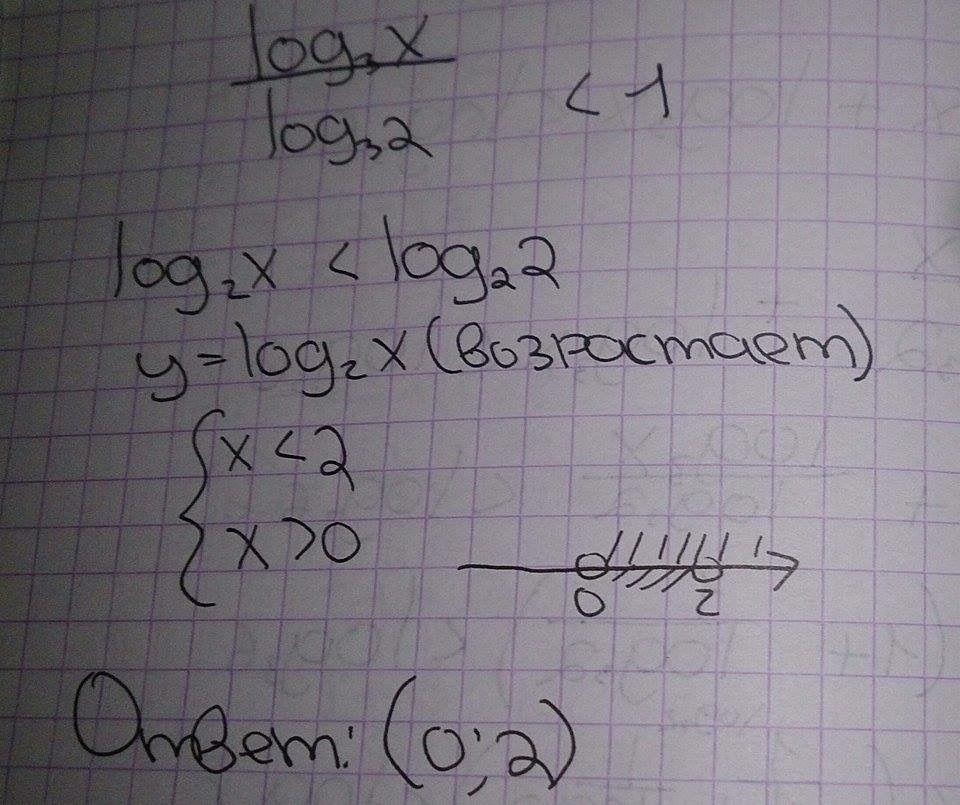 log₃x
log₃2 < 1
log₂x < log₂2
y=log₂x (возростает)
{ x < 2
x > 0
0 2
Ответ: (0;2)